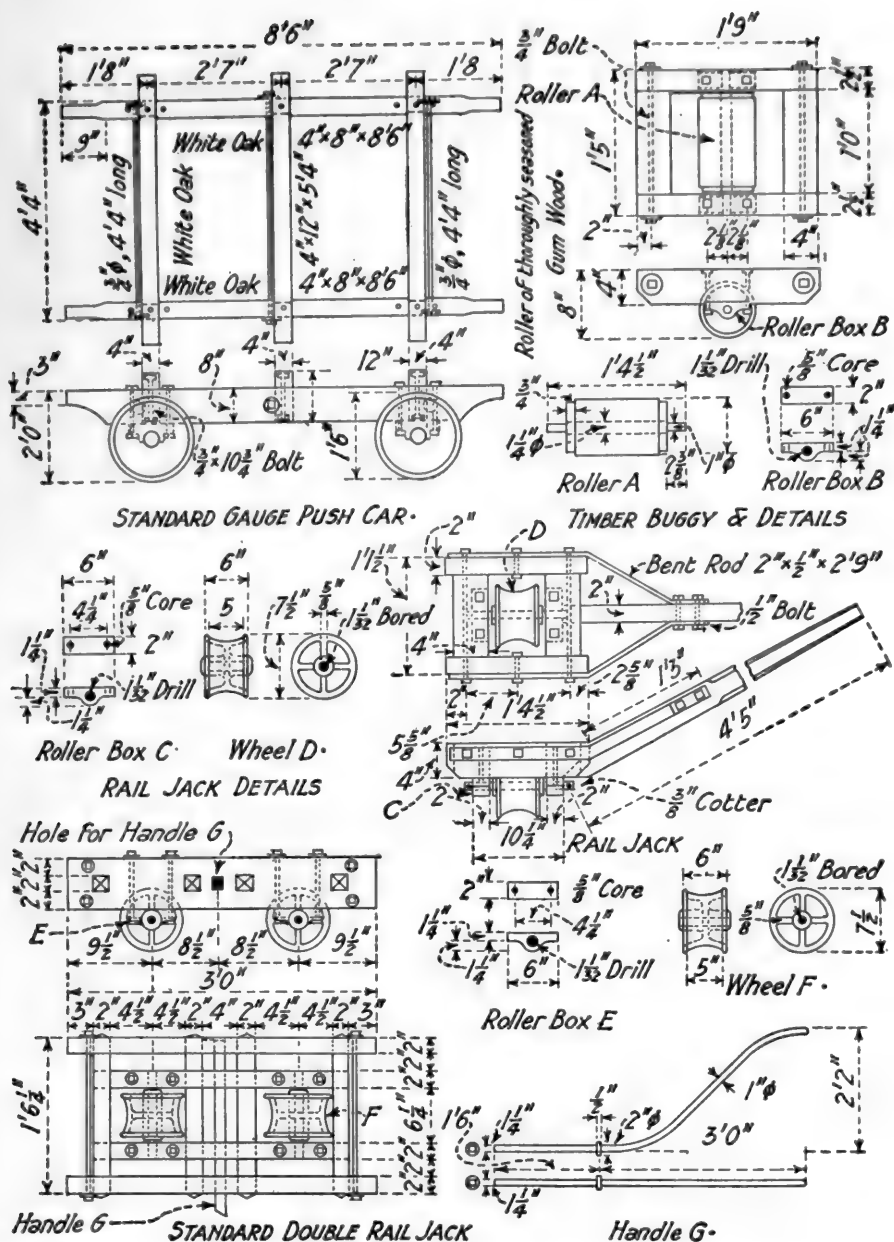 8'6"
1'8" 2'7" 2'7" 1'8
9"
4'4"
3/4"ϕ, 4'4" long
White Oak 4"×8"×8'6"
White Oak
4"×12"×5'4"
3/4"ϕ, 4'4" long
White Oak 4"×8"×8'6"
4" 8" 4" 12" 4"
3"
2'0"
3/4"×10 3/4" Bolt
1'6"
STANDARD GAUGE PUSH CAR.
3/4" Bolt
1'9"
Roller A
Roller of thoroughly seasoned
Gum Wood.
1'5"
2"
1'0"
2"
2" 2 1/8" 2 1/8" 4"
8" 4"
Roller Box B
3/4" 1'4 1/2"
1 1/4"ϕ
1"ϕ
2 3/8"
Roller A
1 1/32" Drill
5/8" Core
2"
6"
1 1/4"
Roller Box B
TIMBER BUGGY & DETAILS
6"
4 1/4"
5/8" Core
2"
1 1/4"
1 1/32" Drill
1 1/4"
Roller Box C.
6"
5
7 1/2"
5/8"
1 1/32" Bored
Wheel D.
RAIL JACK DETAILS
2"
D
1'1 1/2"
Bent Rod 2"×1/2"×2'9"
2"
1/2" Bolt
4"
2 5/8"
1'3"
2"
1'4 1/2"
5 5/8"
4'5"
4"
C
2"
2"
3/8" Cotter
10 1/4"
RAIL JACK
Hole for Handle G
2" 2" 2"
E
9 1/2" 8 1/2" 8 1/2" 9 1/2"
3'0"
3" 2" 4 1/2" 4 1/2" 2" 4" 2" 4 1/2" 4 1/2" 2" 3"
1'6 1/4"
2" 2" 2"
6 1/4"
2" 2" 2"
F
Handle G
STANDARD DOUBLE RAIL JACK
2"
5/8" Core
4 1/4"
1 1/4"
1 1/4"
6"
1 1/32" Drill
Roller Box E
6"
1 1/32" Bored
5/8"
7 1/2
5"
Wheel F.
1'6"
1 1/4"
1/2"
2"ϕ
1"ϕ
3'0"
2'2"
1 1/4"
Handle G.